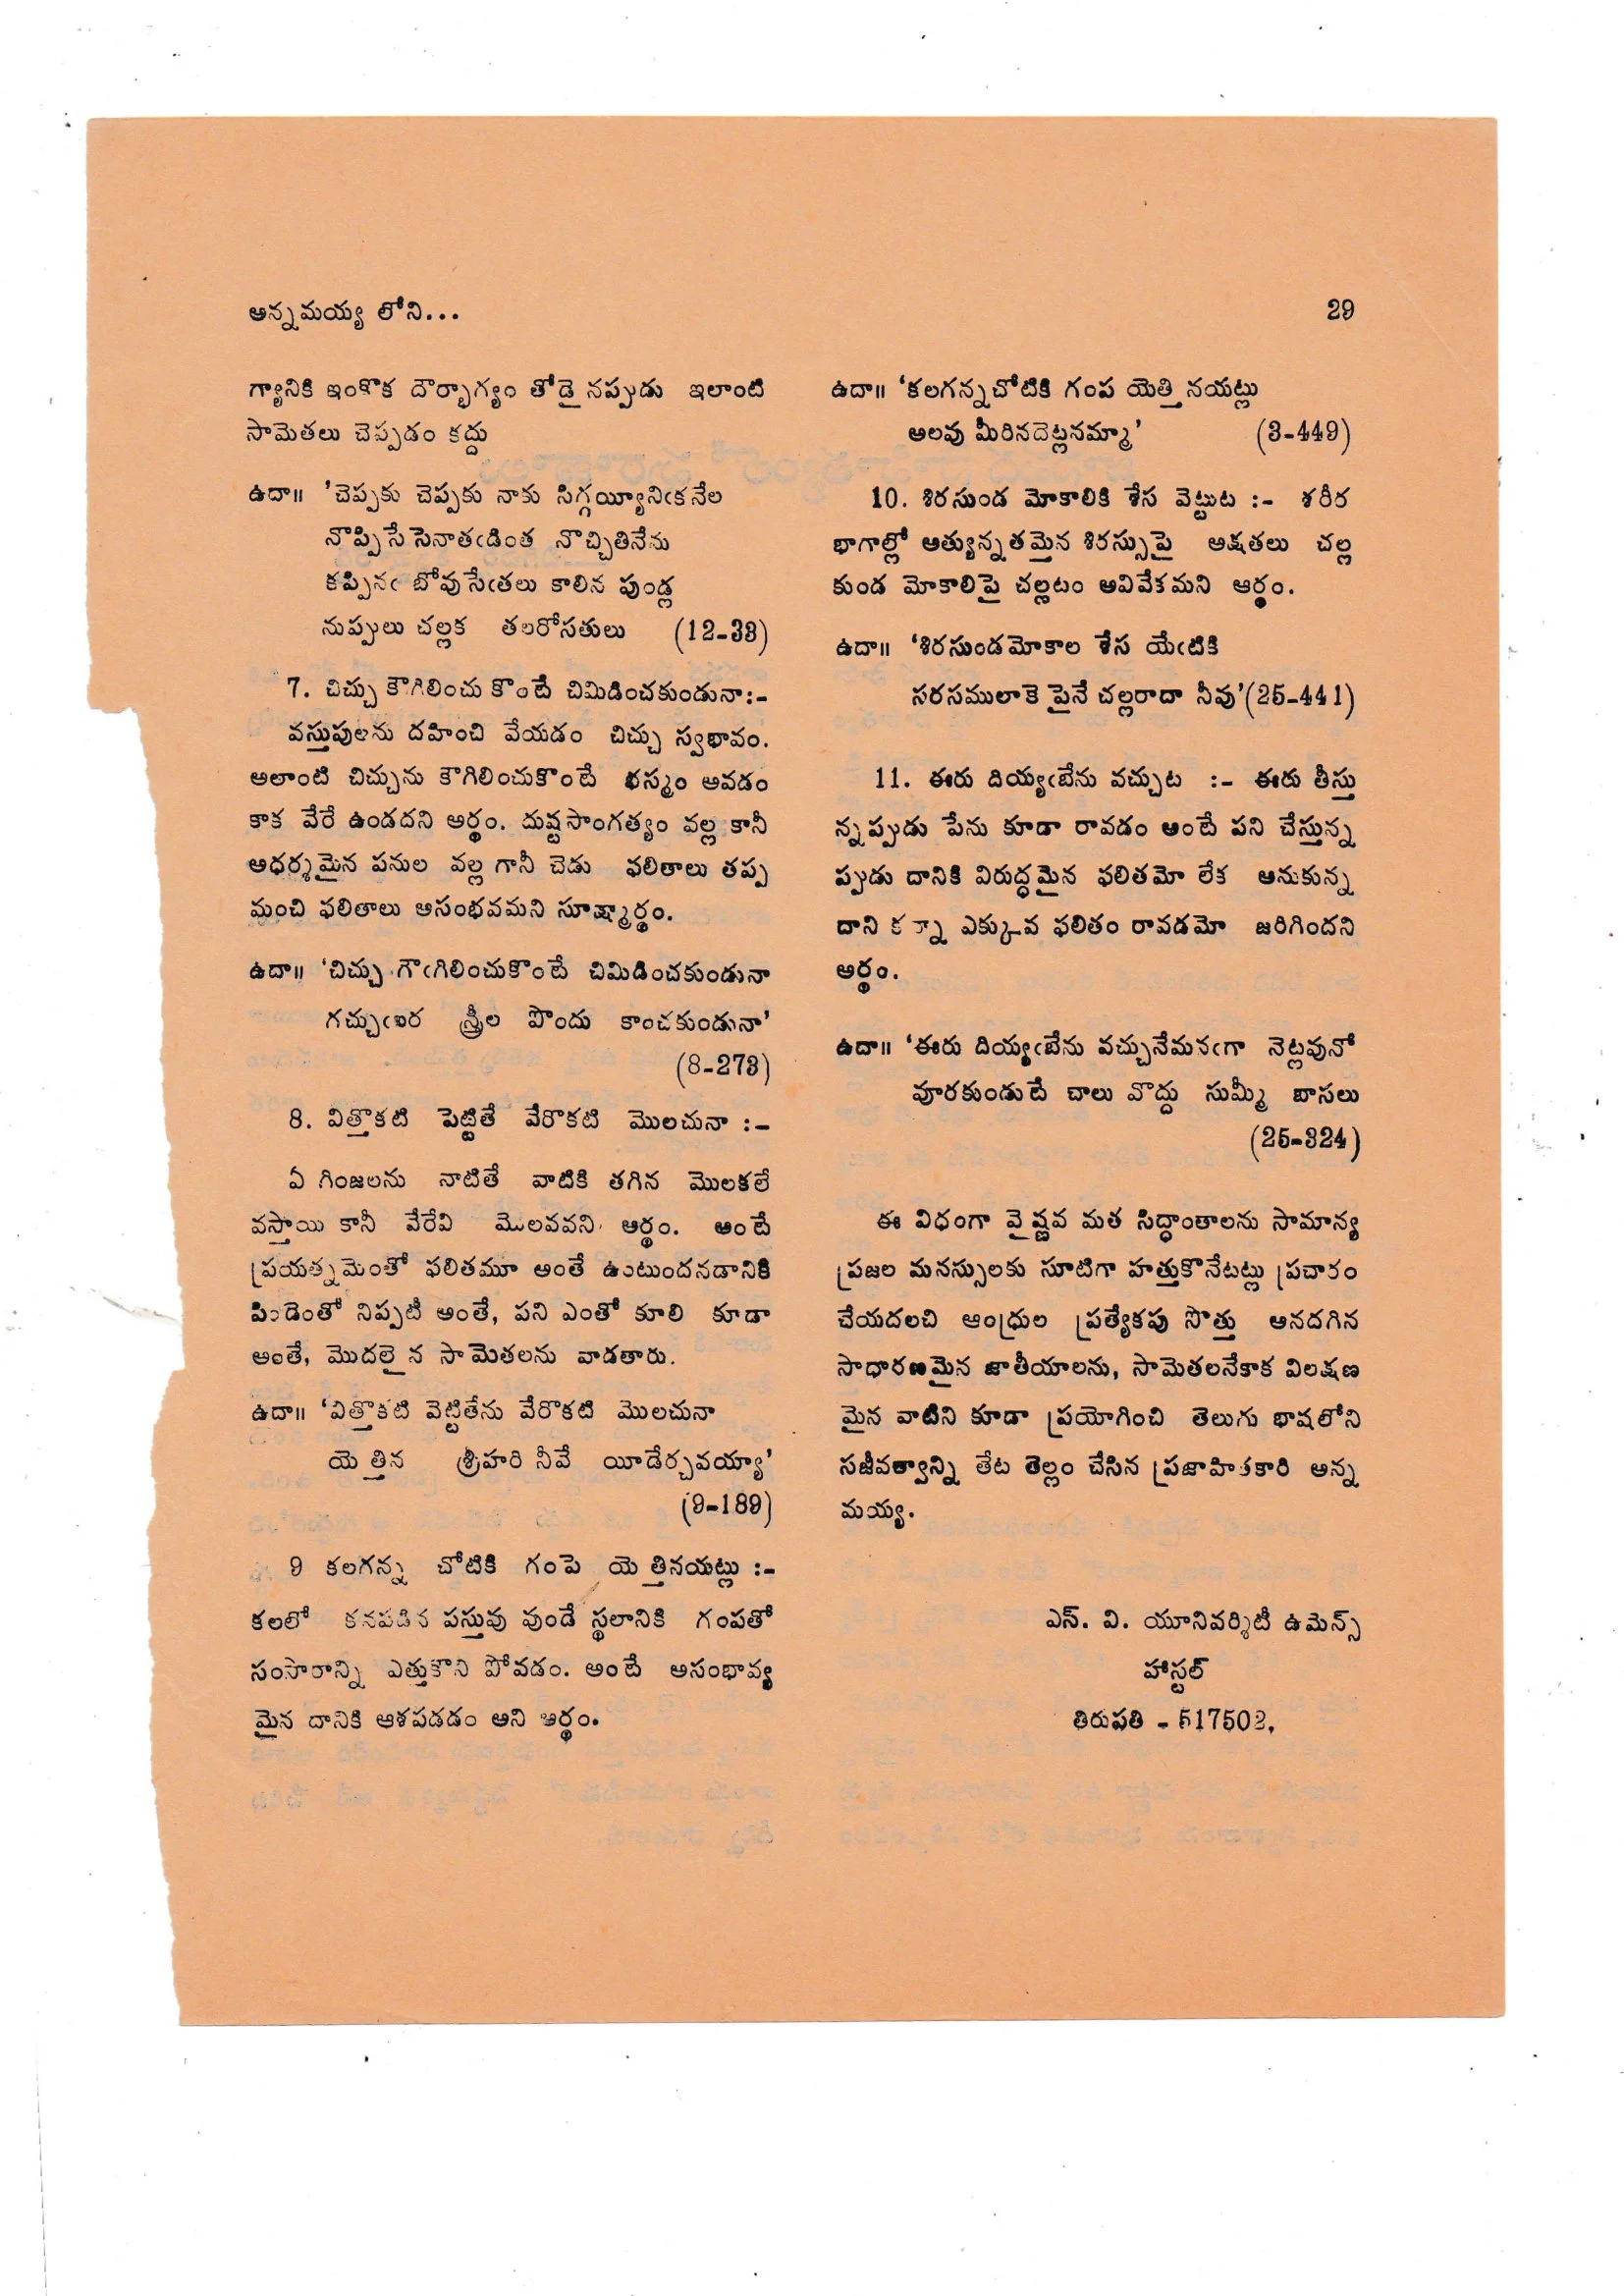 అన్నమయ్య లోని...
29
గ్యానికి ఇంకొక దౌర్భాగ్యం తోడై నప్పుడు ఇలాంటి
సామెతలు చెప్పడం కద్దు
ఉదా॥ 'చెప్పకు చెప్పకు నాకు సిగ్గయ్యీనిఁకనేల
నొప్పిసేసెనాతఁడింత నొచ్చితినేను
కప్పినఁ బోవుసేఁతలు కాలిన పుండ్ల
నుప్పులు చల్లక తలరోసతులు (12-33)
7. చిచ్చు కౌగిలించు కొంటే చిమిడించకుండునా:-
వస్తువులను దహించి వేయడం చిచ్చు స్వభావం.
అలాంటి చిచ్చును కౌగిలించుకొంటే భస్మం అవడం
కాక వేరే ఉండదని అర్థం. దుష్టసాంగత్యం వల్ల కానీ
అధర్శమైన పనుల వల్ల గానీ చెడు ఫలితాలు తప్ప
మంచి ఫలితాలు అసంభవమని సూక్ష్మార్థం.
ఉదా॥ 'చిచ్చు గౌఁగిలించుకొంటే చిమిడించకుండునా
గచ్చుఁఖర స్త్రీల పొందు కాంచకుండునా'
(8-273)
8. విత్తొకటి పెట్టితే వేరొకటి మొలచునా :-
ఏ గింజలను నాటితే వాటికి తగిన మొలకలే
వస్తాయి కానీ వేరేవి మొలవవని అర్థం. అంటే
ప్రయత్నమెంతో ఫలితమూ అంతే ఉంటుందనడానికి
పిండెంతో నిప్పటీ అంతే, పని ఎంతో కూలి కూడా
అంతే, మొదలై న సామెతలను వాడతారు.
ఉదా॥ 'విత్తొకటి వెట్టితేను వేరొకటి మొలచునా
యె త్తిన శ్రీహరి నీవే యీడేర్చవయ్యా'
(9-189)
9 కలగన్న చోటికి గంపె యె త్తినయట్లు :-
కలలో కనపడిన వస్తువు వుండే స్థలానికి గంపతో
సంసారాన్ని ఎత్తుకొని పోవడం. అంటే అసంభావ్య
మైన దానికి ఆశపడడం అని అర్థం.
ఉదా॥ 'కలగన్నచోటికి గంప యెత్తి నయట్లు
అలవు మీరినదెట్లనమ్మా' (3-449)
10. శిరసుండ మోకాలికి శేస వెట్టుట :- శరీర
భాగాల్లో అత్యున్నతమైన శిరస్సుపై అక్షతలు చల్ల
కుండ మోకాలిపై చల్లటం అవివేకమని ఆర్థం.
ఉదా॥ 'శిరసుండమోకాల శేస యేఁటికి
సరసములాకె పైనే చల్లరాదా నీవు'(25-441)
11. ఈరు దియ్యఁబేను వచ్చుట :- ఈరు తీస్తు
న్నప్పుడు పేను కూడా రావడం అంటే పని చేస్తున్న
ప్పుడు దానికి విరుద్ధమైన ఫలితమో లేక అనుకున్న
దాని కన్నా ఎక్కువ ఫలితం రావడమో జరిగిందని
అర్థం.
ఉదా॥ 'ఈరు దియ్యఁబేను వచ్చునేమనఁగా నెట్లవునో
వూరకుండుటే చాలు వొద్దు సుమ్మీ బాసలు
(25-324)
ఈ విధంగా వైష్ణవ మత సిద్ధాంతాలను సామాన్య
ప్రజల మనస్సులకు సూటిగా హత్తుకొనేటట్లు ప్రచారం
చేయదలచి ఆంధ్రుల ప్రత్యేకపు సొత్తు అనదగిన
సాధారణమైన జాతీయాలను, సామెతలనేకాక విలక్షణ
మైన వాటిని కూడా ప్రయోగించి తెలుగు భాషలోని
సజీవత్వాన్ని తేట తెల్లం చేసిన ప్రజాహితకారి అన్న
మయ్య.
ఎస్. వి. యూనివర్శిటీ ఉమెన్స్
హాస్టల్
తిరుపతి - 517502,